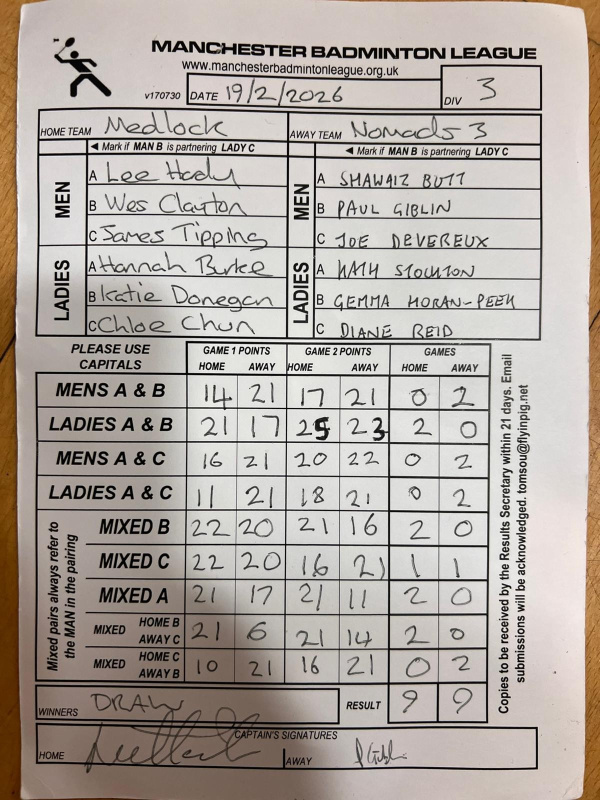 MANCHESTER BADMINTON LEAGUE
www.manchesterbadmintonleague.org.uk
v170730 DATE 19/2/2026 DIV 3
HOME TEAM Medlock AWAY TEAM Nomads 3
◄ Mark if MAN B is partnering LADY C ◄ Mark if MAN B is partnering LADY C
MEN A Lee Hady MEN A SHAWAIZ BUTT
B Wes Clayton B PAUL GIBLIN
C James Tipping C JOE DEVEREUX
LADIES A Hannah Burke LADIES A KATH STOCKTON
B Katie Donegan B GEMMA HORAN-PEEK
C Chloe Chun C DIANE REID
PLEASE USE CAPITALS GAME 1 POINTS GAME 2 POINTS GAMES
HOME AWAY HOME AWAY HOME AWAY
MENS A & B 14 21 17 21 0 2
LADIES A & B 21 17 25 23 2 0
MENS A & C 16 21 20 22 0 2
LADIES A & C 11 21 18 21 0 2
Mixed pairs always refer to the MAN in the pairing
MIXED B 22 20 21 16 2 0
MIXED C 22 20 16 21 1 1
MIXED A 21 17 21 11 2 0
MIXED HOME B AWAY C 21 6 21 14 2 0
MIXED HOME C AWAY B 10 21 16 21 0 2
WINNERS DRAW RESULT 9 9
CAPTAIN'S SIGNATURES
HOME AWAY
Copies to be received by the Results Secretary within 21 days. Email
submissions will be acknowledged. tomsou@flyinpig.net